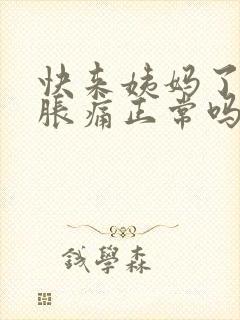 快来姨妈了
胀痛正常吗
钱學森